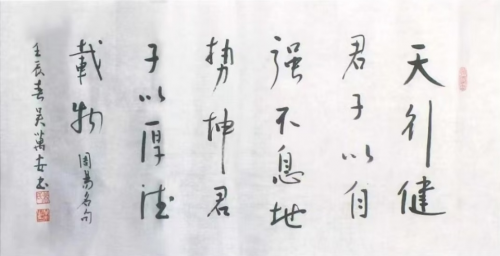 天行健
君子以自
强不息地
势坤君
子以厚德
载物 周易名句
壬辰春吴万安书